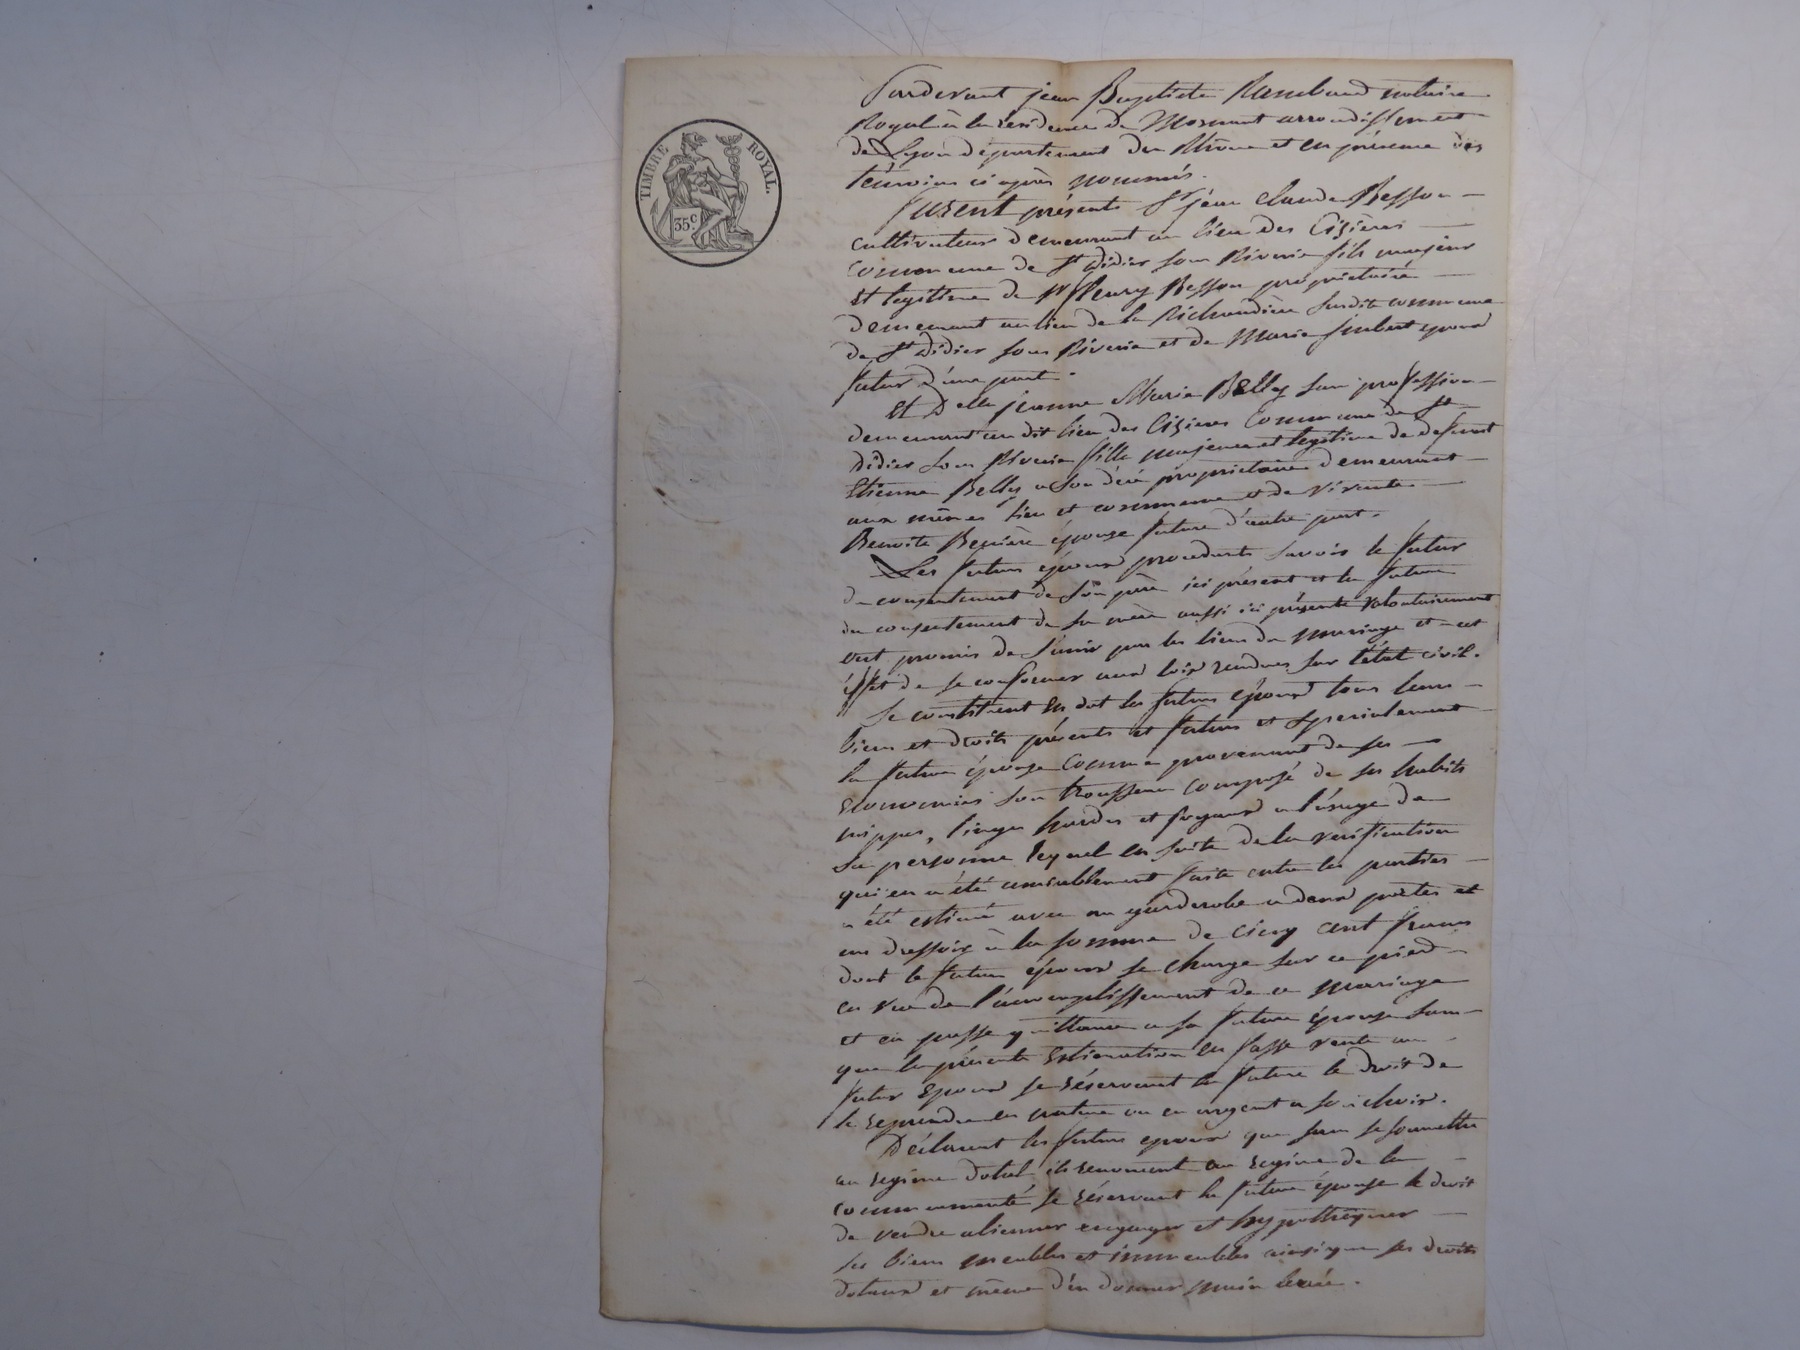 TIMBRE ROYAL.
35c.
Pardevant jean Baptiste Rambaud notaire
Royal à la résidence de Mornant arrondissement
de Lyon département du Rhône et en présence des
témoins ci après nommés.
furent présents Sr jean Claude Besson
cultivateur demeurant au lieu des Cizières
commune de St didier sous Riverie fils majeur
et légitime de Sr fleury Besson propriétaire
demeurant au lieu de la Richaudière susdite commune
de St didier sous Riverie et de Marie Imbert époux
futur d'une part.
Et Delle jeanne Marie Belly sans profession
demeurant au dit lieu des Cizieres Commune de St
didier sous Riverie fille majeure et légitime de defunt
Etienne Belly a son décé propriétaire demeurant
aux mêmes lieu et commune et de vivante
Benoite épouse future d'autre part.
Les futurs époux procedants savoir le futur
du consentement de son père ici présent et la future
du consentement de sa mère aussi ici présente volontairement
ont promis de s'unir par les liens du mariage et a cet
éffet de se conformer aux loix rendues sur l'état civil.
Se constituent en dot les futurs époux tous leurs
biens et droits présents et futurs et specialement
la future épouse comme provenant de ses
économies son trousseau composé de ses habits
nippes, linges hardes et joyaux a l'usage de
sa personne lequel en suite de la verification
qui en a été amiablement faite entre les parties
a été estimé avec un garderobe a deux portes et
un dressoir à la somme de cinq cent francs
dont le futur époux se charge sur ce pied
en vue de l'accomplissement de ce mariage
et en passe quittance a sa future épouse sans
que la présente estimation en fasse vente au
futur époux se réservant la future le droit de
le reprendre en nature ou en argent a son choix.
Déclarent les futurs epoux que sans se soumettre
au régime dotal ils renoncent au regime de la
communauté se réservant la future épouse le droit
de vendre alienner engager et hypothéquer
ses biens meubles et immeubles ainsi que ses droits
dotaux et même d'en donner main levée.